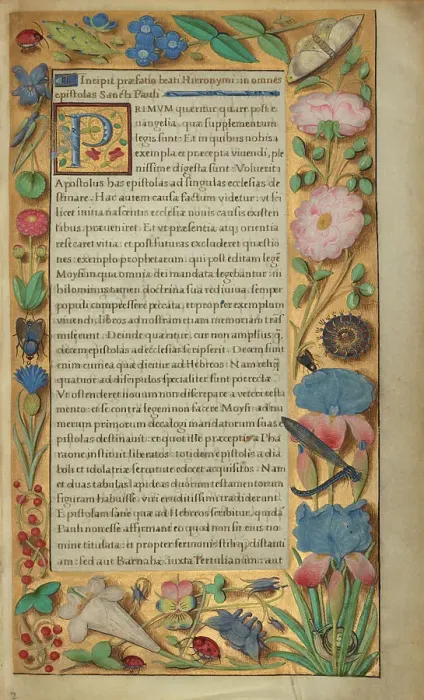 Incipit præfatio beati Hieronymi: in omnes
epistolas Sancti Pauli
PRIMVM quæritur quare post e
uangelia, quæ supplementum
legis sunt: Et in quibus nobis a
exempla et præcepta viuendi, ple
nissime digesta sunt: Voluerit:
Apostolus has epistolas ad singulas ecclesias de
stinare. Hac autem causa factum videtur: vt sci
licet initia nascentis ecclesiæ nouis causis existen
tibus præueniret: Et vt præsentia, atq. orientia
resecaret vitia: et post futuras excluderet quæstio
nes: exemplo prophetarum: qui post editam legē
Moysi, in qua omnia dei mandata legebantur: ni
hilominus tamen doctrina sua rediuiua semper
populi compressere peccata, et propter exemplum
viuendi, libros ad nostram etiam memoriam trās
miserunt. Deinde quæritur, cur non amplius, q̃,
decem epistolas ad ecclesias scripserit. Decem sunt
enim cum ea quæ dicitur ad Hebreos: Nam reliq̃
quatuor ad discipulos specialiter sunt porrectæ
Vt ostenderet nouum non discrepare a veteri testa
mento: et se contra legem non facere Moysi: ad nu
merum primorum decalogi mandatorum suas e
pistolas destinauit: et quot ille præceptis a Pha
raone instituit liberatos: totidem epistolis a dia
boli et idolatriæ seruitute edocet acquisitos: Nam
et duas tabulas lapideas duorum testamentorum
figuram habuisse: viri eruditissimi tradiderunt:
Epistolam sane quæ ad Hebreos scribitur, quidā
Pauli non esse affirmant eo quod non sit eius no
mine titulata: et propter sermonis stiliq, distanti
am: sed aut Barnabæ iuxta Tertulianum: aut